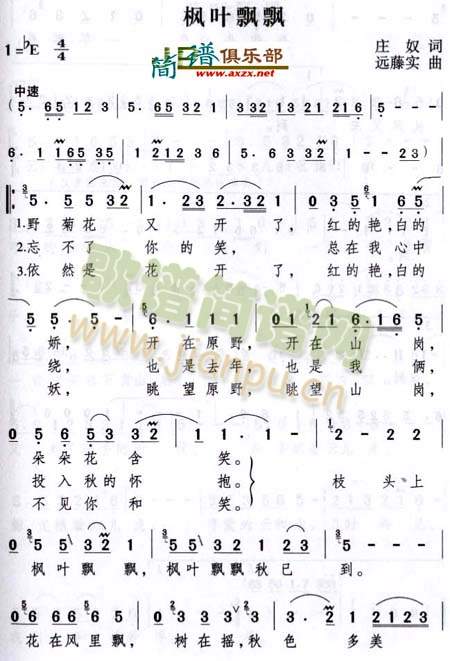 枫叶飘飘
简谱俱乐部
www.axzx.net
1=♭E 4/4
庄奴 词
远藤实 曲
中速
(5. 65 123 | 5. 65321 | 3. 33321321216 |
6. 1 16535 | 1 21236 | 5. 65321 | 1 - - 23)
5. 5 5532 | 1. 232.321 | 0 35 1 65
1.野菊花 又 开 了, 红的艳,白的
2.忘不了 你的 笑, 总在我心中
3.依然是 花 开 了, 红的艳,白的
5 5. 5 - | 6. 1 11 | 0121 6.165
娇, 开在原野, 开在山 岗,
绕, 也是去年, 也是我 俩,
妖, 眺望原野, 眺望山 岗,
0 5 6 53 32 | 1 1. 1 - | 2 - 22
朵朵花含 笑。
投入秋的怀 抱。 枝头上
不见你和 笑。
0 5 5\ 35 32 | 1. 155 32 1232 | 1 - - -
枫叶飘 飘, 枫叶飘飘秋已 到。
0 66 665 | 3 233 032 | 1. 21235
花在风里飘, 树在摇,秋 色 多美
歌谱简谱网
www.jianpu.cn